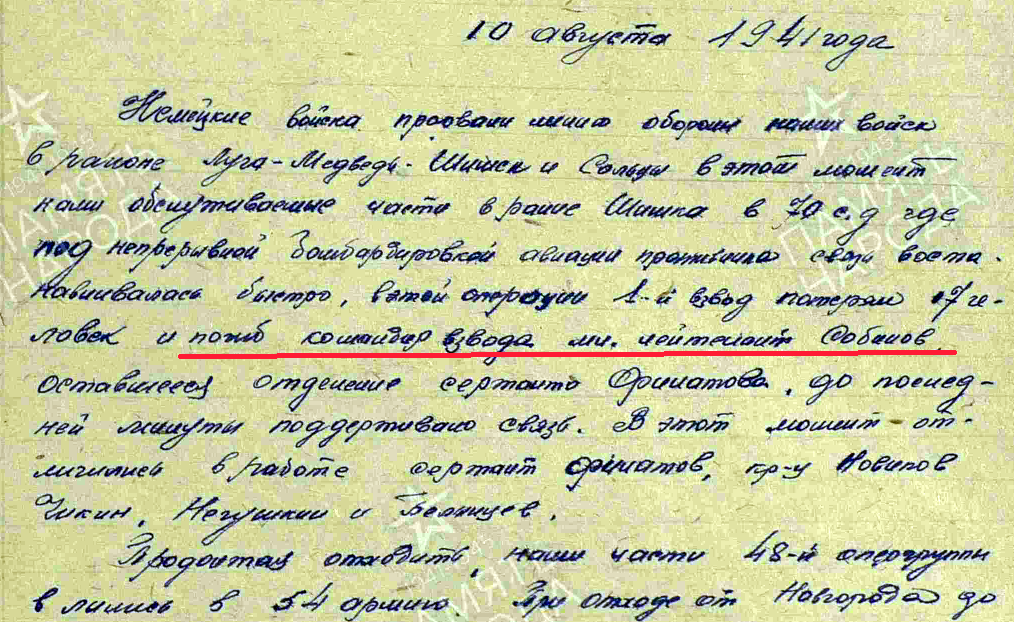 10 августа 1941 года
Немецкие войска прорвали линию обороны наших войск
в районе Луга-Медведь-Шимск и Сольцы в этот момент
нами обслуживаемые части в раине Шимска в 70 с.д где
под непрерывной бомбардировкой авиации противника связь воста-
навливалась быстро, в этой операции 1-й взвод потерял 17 че-
ловек и погиб командир взвода мл. лейтенант Собанов
оставшееся отделение сержанта Филатова, до послед-
ней минуты поддерживало связь. В этот момент от-
личились в работе сержант Филатов, кр-ц Новиков
Чикин, Негушкин и
Продолжая отходить, наши части 48-й опергруппы
влились в 54 армию. При отходе от Новгорода до
ПАМЯТЬ
НАРОДА